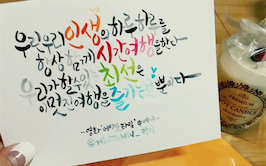 우린우리 인생의 하루하루를
항상 함께 시간여행을 한다
우리가 할 수 있는 최선은
이 멋진 여행을 즐기는 것 뿐이다
- 영화 '어바웃 타임' 中에서 -
PREMIUM
CANDLE